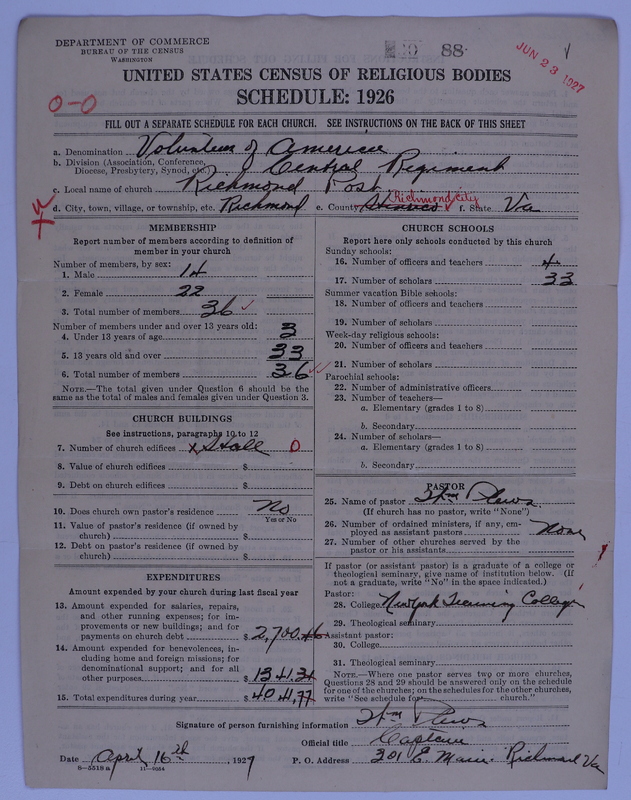 DEPARTMENT OF COMMERCE
BUREAU OF THE CENSUS
WASHINGTON
88
JUN 23 1927
UNITED STATES CENSUS OF RELIGIOUS BODIES
SCHEDULE: 1926
0-0
FILL OUT A SEPARATE SCHEDULE FOR EACH CHURCH. SEE INSTRUCTIONS ON THE BACK OF THIS SHEET
a. Denomination Volunteers of America
b. Division (Association, Conference, Diocese, Presbytery, Synod, etc.) Central Regiment
c. Local name of church Richmond Post
d. City, town, village, or township, etc. Richmond e. County Henrico Richmond city f. State Va
MEMBERSHIP
Report number of members according to definition of
member in your church
Number of members, by sex:
1. Male 14
2. Female 22
3. Total number of members 36
Number of members under and over 13 years old:
4. Under 13 years of age 3
5. 13 years old and over 33
6. Total number of members 36
NOTE.—The total given under Question 6 should be the
same as the total of males and females given under Question 3.
CHURCH BUILDINGS
See instructions, paragraphs 10 to 12
7. Number of church edifices x Hall 0
8. Value of church edifices $
9. Debt on church edifices $
10. Does church own pastor's residence No
Yes or No
11. Value of pastor's residence (if owned by
church) $
12. Debt on pastor's residence (if owned by
church) $
EXPENDITURES
Amount expended by your church during last fiscal year
13. Amount expended for salaries, repairs,
and other running expenses; for im-
provements or new buildings; and for
payments on church debt $ 2,700.46
14. Amount expended for benevolences, in-
cluding home and foreign missions; for
denominational support; and for all
other purposes $ 1341.31
15. Total expenditures during year $ 4041.77
CHURCH SCHOOLS
Report here only schools conducted by this church
Sunday schools:
16. Number of officers and teachers 4
17. Number of scholars 33
Summer vacation Bible schools:
18. Number of officers and teachers
19. Number of scholars
Week-day religious schools:
20. Number of officers and teachers
21. Number of scholars
Parochial schools:
22. Number of administrative officers
23. Number of teachers—
a. Elementary (grades 1 to 8)
b. Secondary
24. Number of scholars—
a. Elementary (grades 1 to 8)
b. Secondary
PASTOR
25. Name of pastor Wm Plews
(If church has no pastor, write "None")
26. Number of ordained ministers, if any, em-
ployed as assistant pastors None
27. Number of other churches served by the
pastor or his assistants
If pastor (or assistant pastor) is a graduate of a college or
theological seminary, give name of institution below. (If
not a graduate, write "No" in the space indicated.)
Pastor:
28. College New York Training College
29. Theological seminary
Assistant pastor:
30. College
31. Theological seminary
NOTE.—Where one pastor serves two or more churches,
Questions 28 and 29 should be answered only on the schedule
for one of the churches; on the schedules for the other churches,
write "See schedule for church."
Signature of person furnishing information Wm Plews
Official title Captain
Date April 16th, 1927 P. O. Address 301 E. Main Richmond Va
8—5518 a 11—9564